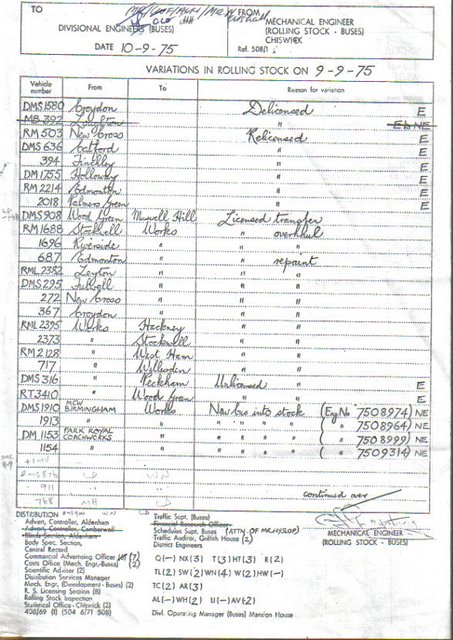 TO
FROM
DIVISIONAL ENGINEERS (BUSES)
MECHANICAL ENGINEER
(ROLLING STOCK - BUSES)
CHISWICK
DATE 10-9-75
Ref. 508/1
VARIATIONS IN ROLLING STOCK ON 9-9-75
Vehicle number From To Reason for variation
DMS1580 Croydon Delicensed E
MB392 Loughton " E NE
RM503 New Cross Relicensed E
DMS636 Catford " E
394 Finchley " E
DM1755 Holloway " E
RM2214 Edmonton " E
2018 Palmers Green " E
DMS908 Wood Green Muswell Hill Licensed transfer
RM1688 Stockwell Works " overhaul
1696 Riverside " " "
687 Edmonton " " repaint
RML2382 Leyton " " "
DMS295 Fulwell " " "
272 New Cross " " "
367 Croydon " " "
RML2395 Works Hackney " "
2373 " Stockwell " "
RM2128 " West Ham " "
717 " Willesden " "
DMS316 " Peckham Unlicensed " E
RT3410 " Wood Green " " E
DMS1910 MCW BIRMINGHAM Works New bus into stock (Eng No 7508974) NE
1913 " " " " " " ( " 7508964) NE
DM1153 PARK ROYAL COACHWORKS " " " " " ( " 7508999) NE
1154 " " " " " " ( " 7509314) NE
911
768 MH
continued over
DISTRIBUTION
Advert. Controller, Aldenham
Advert. Controller, Camberwell
Bleeds Section, Aldenham
Body Spec. Section,
Central Record
Commercial Advertising Officer (7)
Costs Office (Mech. Engr.-Buses) (2)
Scientific Adviser (2)
Distribution Services Manager
Mech. Engr. (Development - Buses) (2)
R. S. Licensing Section (8)
Rolling Stock Inspection
Statistical Office - Chiswick (2)
408/69 (1) (504 6/71 508)
Traffic Supt. (Buses)
Financial Research Officer
Schedules Supt. (Buses) (ATTN. OF MR HYSLOP)
Traffic Auditor, Griffith House (2)
District Engineers
Q(—) NX(3) T(3) HT(3) R(2)
TL(2) SW(2) WN(4) W(2) HW(—)
TC(2) AR(3)
AL(—) WH(2) U(—) AV(2)
Divl. Operating Manager (Buses) Mansion House
MECHANICAL ENGINEER
(ROLLING STOCK - BUSES)